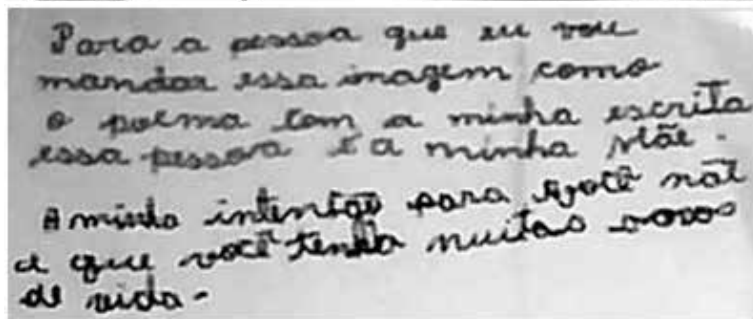 Para a pessoa que eu vou
mandar essa imagem como
o poema com a minha escrita
essa pessoa é a minha Mãe.
A minha intenção para você
é que você tenha muitas
de vida.